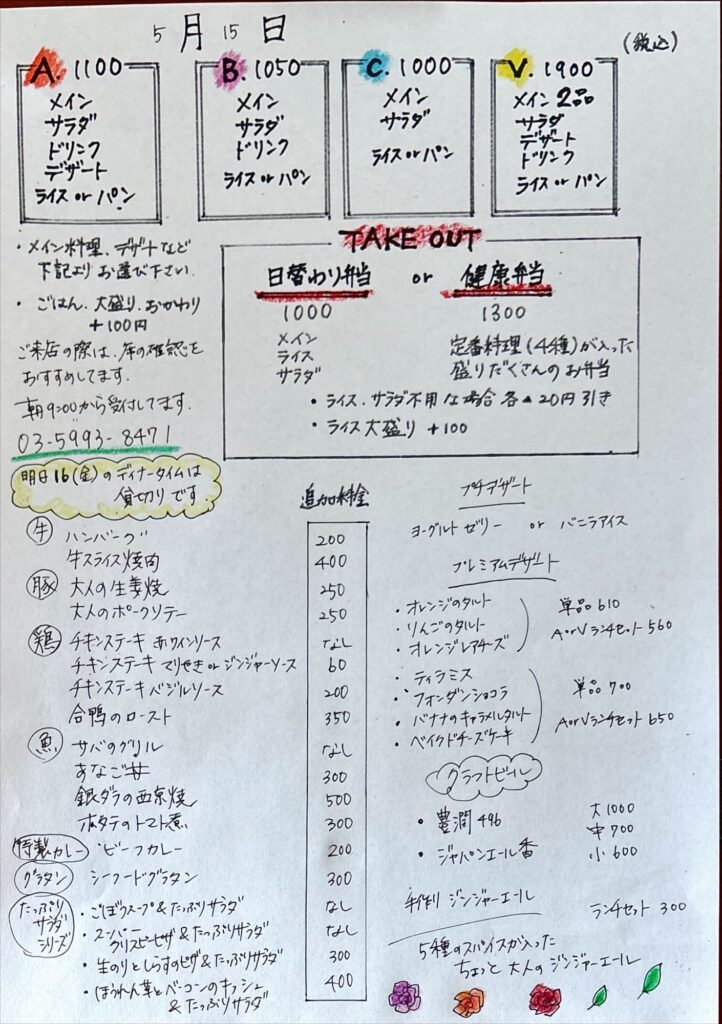 5月15日
(税込)
A. 1100
メイン
サラダ
ドリンク
デザート
ライス or パン
B. 1050
メイン
サラダ
ドリンク
ライス or パン
C. 1000
メイン
サラダ
ライス or パン
V. 1900
メイン 2品
サラダ
デザート
ドリンク
ライス or パン
・メイン料理、デザートなど
下記よりお選び下さい
・ごはん、大盛り、おかわり
+100円
ご来店の際は、席の確認を
おすすめしてます。
朝9:00から受付してます。
03-5993-8471
明日16(金)のディナータイムは
貸切りです
TAKE OUT
日替わり弁当 or 健康弁当
1000
メイン
ライス
サラダ
1300
定番料理(4種)が入った
盛りだくさんのお弁当
・ライス、サラダ不用な場合 各▲20円引き
・ライス大盛り +100
追加料金
牛 ハンバーグ 200
牛スライス焼肉 400
豚 大人の生姜焼 250
大人のポークソテー 250
鶏 チキンステーキ 赤ワインソース なし
チキンステーキ てりやき or ジンジャーソース 60
チキンステーキ バジルソース 200
合鴨のロースト 350
魚 サバのグリル なし
あなご丼 300
銀ダラの西京焼 500
ホタテのトマト煮 300
特製カレー ・ビーフカレー 200
グラタン シーフードグラタン 300
たっぷり
サラダ
シリーズ
・ごぼうスープ&たっぷりサラダ なし
・スーパー
クリスピーピザ&たっぷりサラダ なし
・生のりとしらすのピザ&たっぷりサラダ 300
・ほうれん草とベーコンのキッシュ
&たっぷりサラダ 400
プチデザート
ヨーグルトゼリー or バニラアイス
プレミアムデザート
・オレンジのタルト
・りんごのタルト
・オレンジレアチーズ
単品 610
A or V ランチセット 560
・ティラミス
・フォンダンショコラ
・バナナのキャラメルタルト
・ベイクドチーズケーキ
単品 700
A or V ランチセット 650
クラフトビール
・豊潤 496
・ジャパンエール香
大 1000
中 700
小 600
手作り ジンジャーエール
ランチセット 300
5種のスパイスが入った
ちょっと大人のジンジャーエール